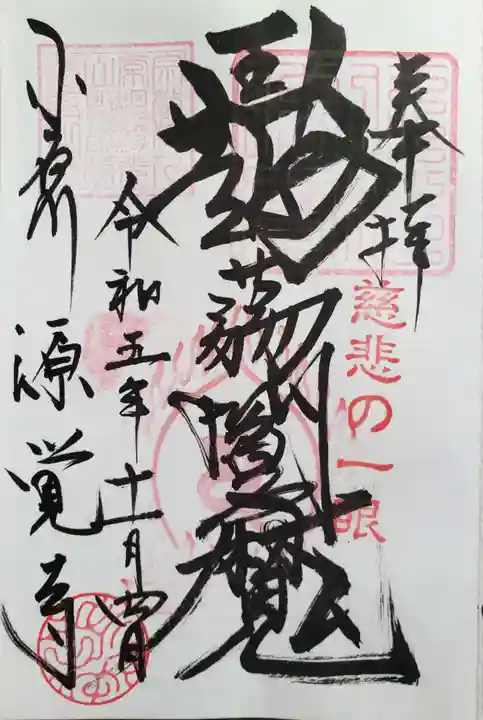 奉拝
慈悲の一眼
蒟蒻閻魔
令和五年十一月四日
小石川 源覚寺